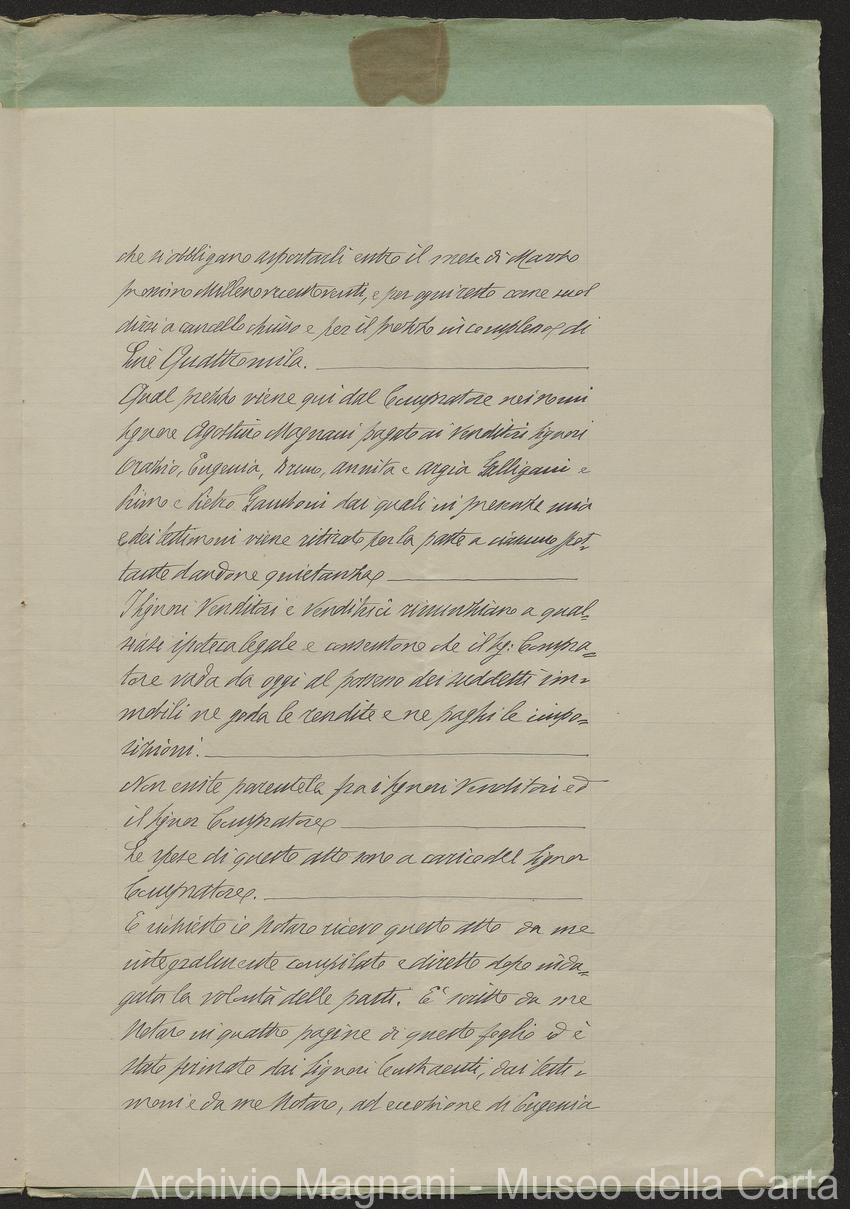 che si obbligano asportarli entro il mese di Marzo
prossimo Millenovecentoventi, e per ogni resto come suol
dirsi a cancello chiuso e per il prezzo in complesso di
Lire Quattromila.
Qual prezzo viene qui dal Compratore nei nomi
Signore Agostino Magnani pagato ai Venditori Signori
Orazio, Eugenia, Bruno, Annita e Argia Galligani e
Primo e Pietro Gamboni dai quali in presenza mia
e dei testimoni viene ritirato per la parte a ciascuno spet=
tante dandone quietanza
I Signori Venditori e Venditrici rinunziano a qual=
siasi ipoteca legale e consentono che il Sig: Compra=
tore vada da oggi al possesso dei suddetti im=
mobili ne goda le rendite e ne paghi le impo=
sizioni.
Non esiste parentela fra i Signori Venditori ed
il Signor Compratore
Le spese di questo atto sono a carico del Signor
Compratore.
E richiesto io Notaro ricevo questo atto da me
integralmente compilato e diretto dopo inda=
gata la volontà delle parti. E' scritto da me
Notaro in quattro pagine di questo foglio ed è
stato firmato dai Signori Contraenti, dai testi=
moni e da me Notaro, ad eccezione di Eugenia
Archivio Magnani - Museo della Carta